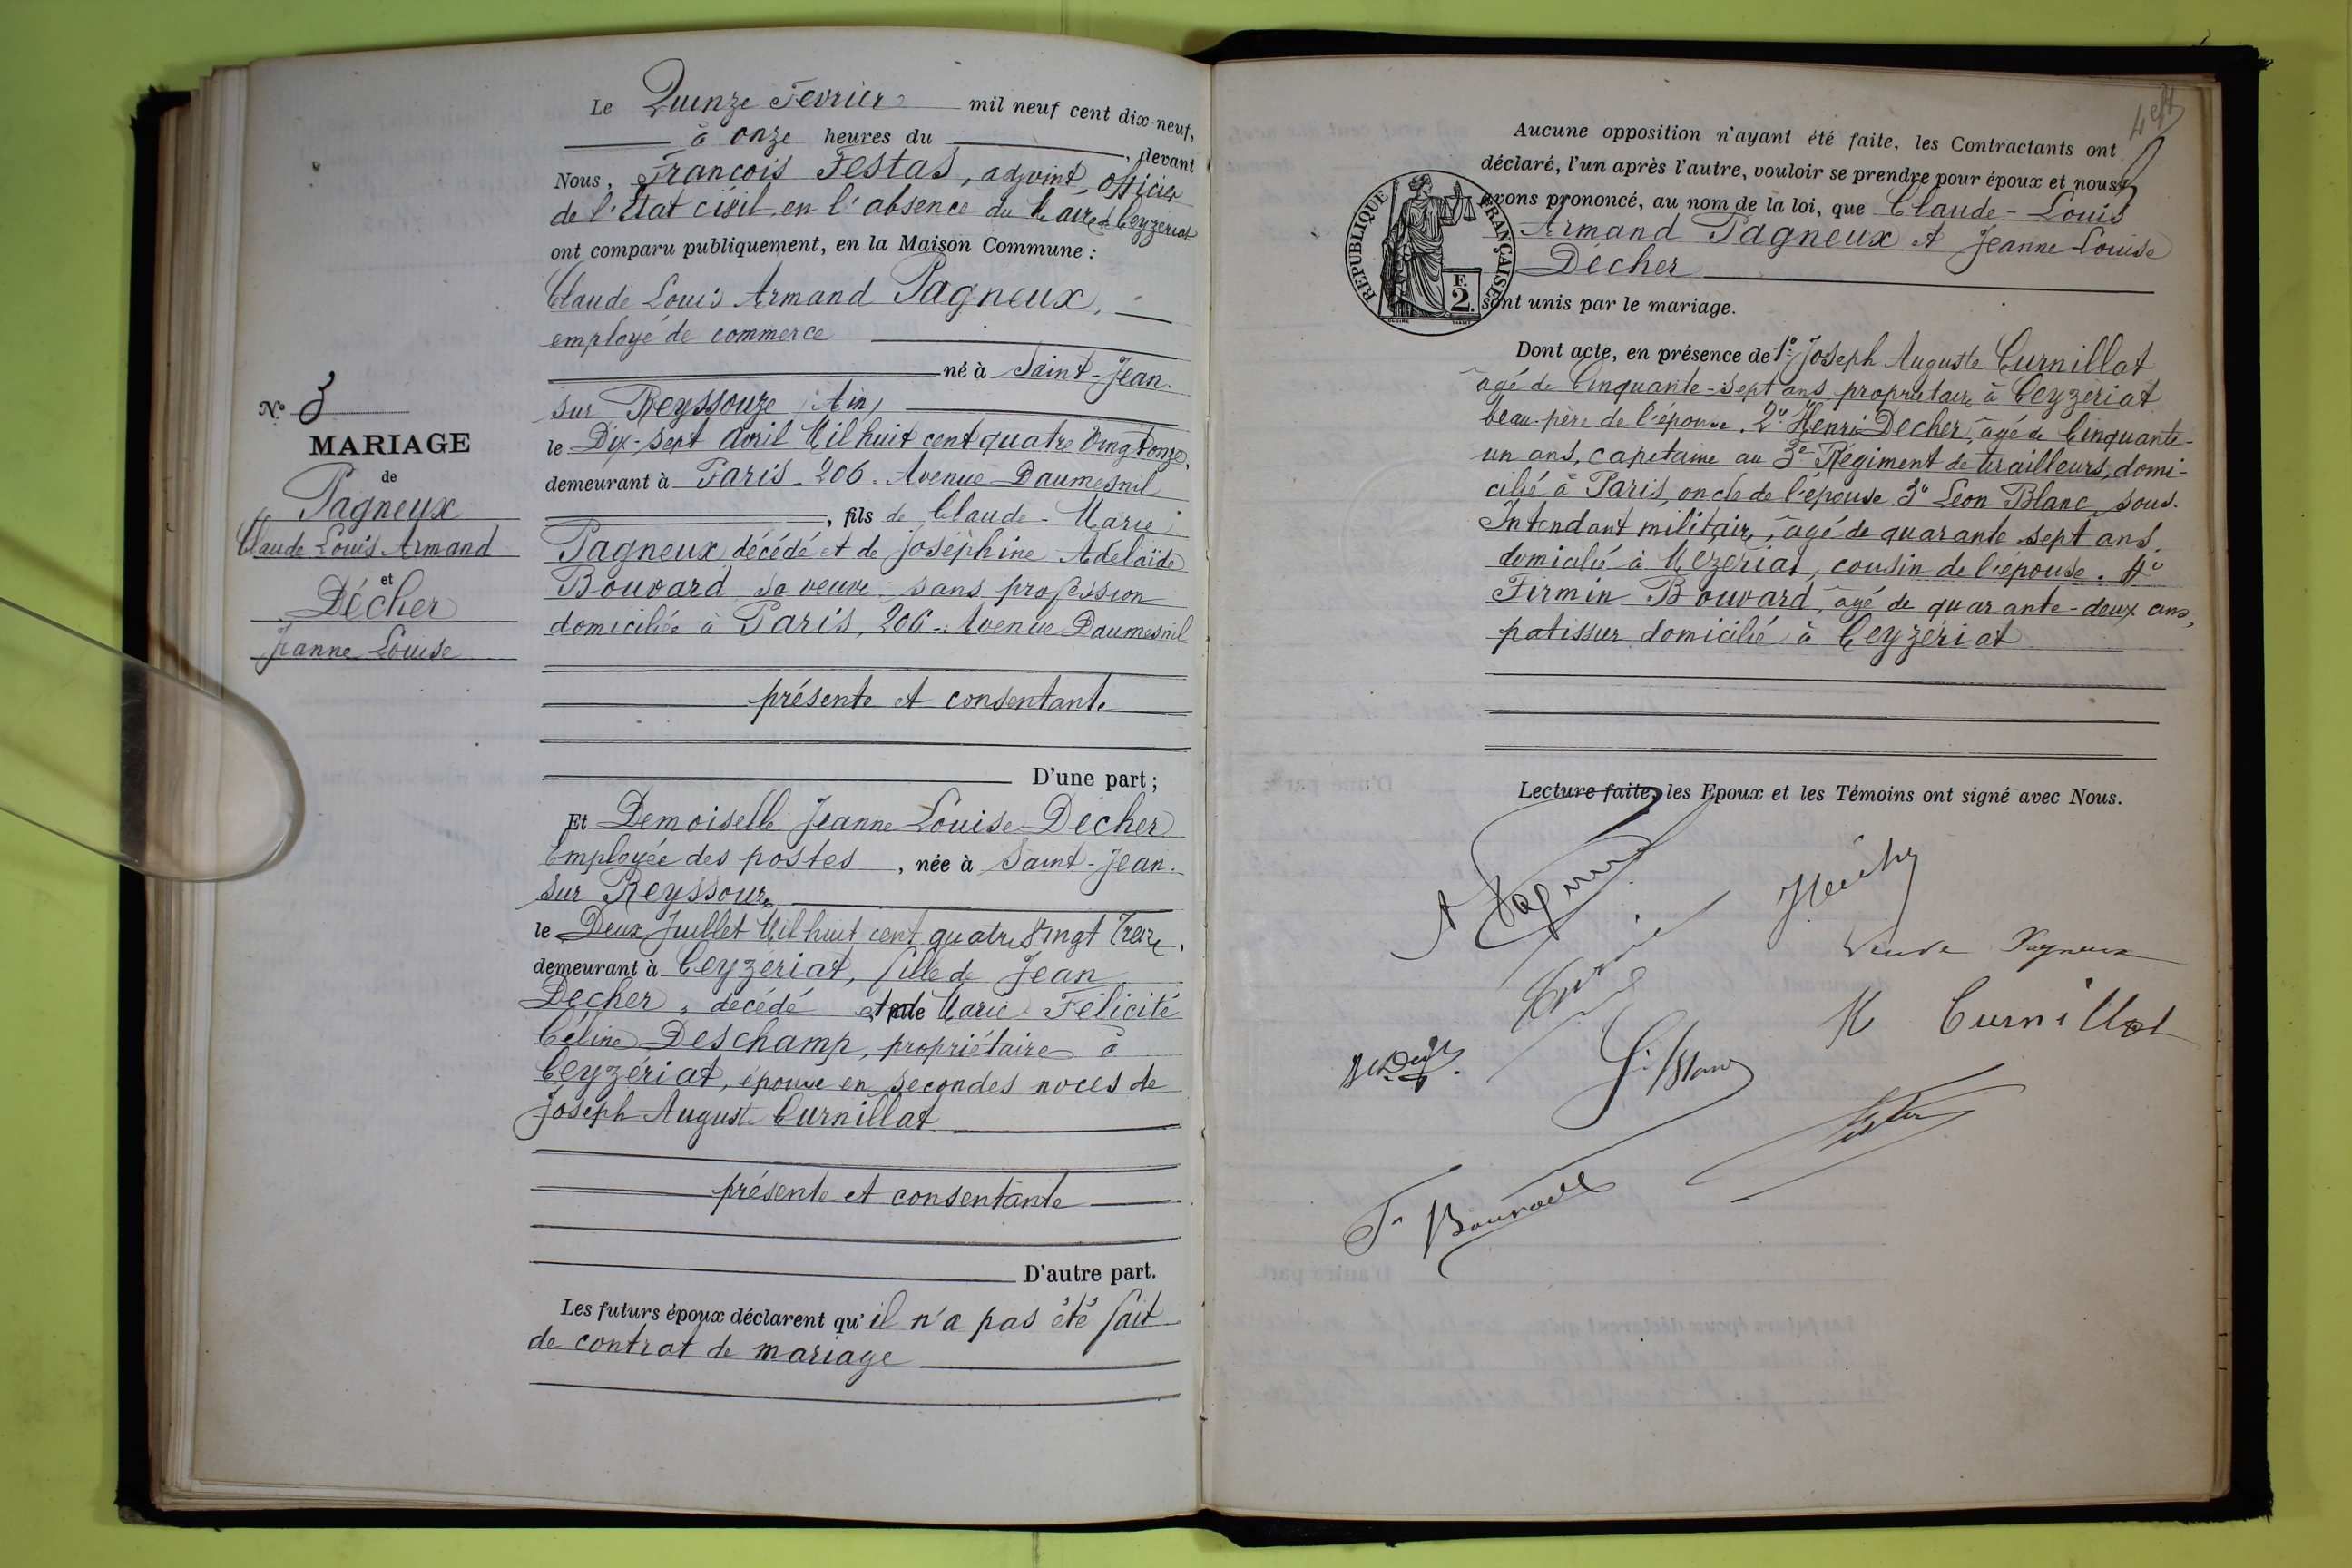 Le Quinze Fevrier mil neuf cent dix-neuf,
à onze heures du , devant
Nous, François Festas, adjoint, officier
de l'Etat civil en l'absence du Maire de Ceyzériat
ont comparu publiquement, en la Maison Commune :
Claude Louis Armand Pagneux,
employé de commerce
né à Saint-Jean-
sur Reyssouze (Ain)
le Dix-sept Avril Mil huit cent quatre vingt onze,
demeurant à Paris - 206 - Avenue Daumesnil
, fils de Claude-Marie
Pagneux décédé et de Joséphine Adelaïde
Bouvard sa veuve - sans profession
domiciliée à Paris, 206 - Avenue Daumesnil
présente et consentante
D'une part ;
Et Demoiselle Jeanne Louise Décher
Employée des postes , née à Saint-Jean-
sur Reyssouze
le Deux Juillet Mil huit cent quatre vingt Treize,
demeurant à Ceyzeriat, fille de Jean
Décher, décédé et de Marie Félicité
Céline Deschamp, propriétaire à
Ceyzériat, épouse en secondes noces de
Joseph Auguste Curnillat
présente et consentante
D'autre part.
Les futurs époux déclarent qu'il n'a pas été fait
de contrat de mariage
N° 3
MARIAGE
de
Pagneux
Claude Louis Armand
et
Décher
Jeanne Louise
Aucune opposition n'ayant été faite, les Contractants ont
déclaré, l'un après l'autre, vouloir se prendre pour époux et nous
avons prononcé, au nom de la loi, que Claude-Louis
Armand Pagneux et Jeanne Louise
Décher
sont unis par le mariage.
RÉPUBLIQUE FRANÇAISE
F.
2.
Dont acte, en présence de 1° Joseph Auguste Curnillat
âgé de Cinquante-sept ans propriétaire à Ceyzériat
beau-père de l'épouse. 2° Henri Décher, âgé de Cinquante-
un ans, capitaine au 3e Régiment de tirailleurs, domi-
cilié à Paris, oncle de l'épouse 3° Léon Blanc, sous-
Intendant militaire, âgé de quarante sept ans,
domicilié à Mézériat, cousin de l'épouse. 4°
Firmin Bouvard, âgé de quarante-deux ans,
patissier domicilié à Ceyzériat
Lecture faite, les Epoux et les Témoins ont signé avec Nous.
Veuve Pagneux
Curnillat
F. Bouvard